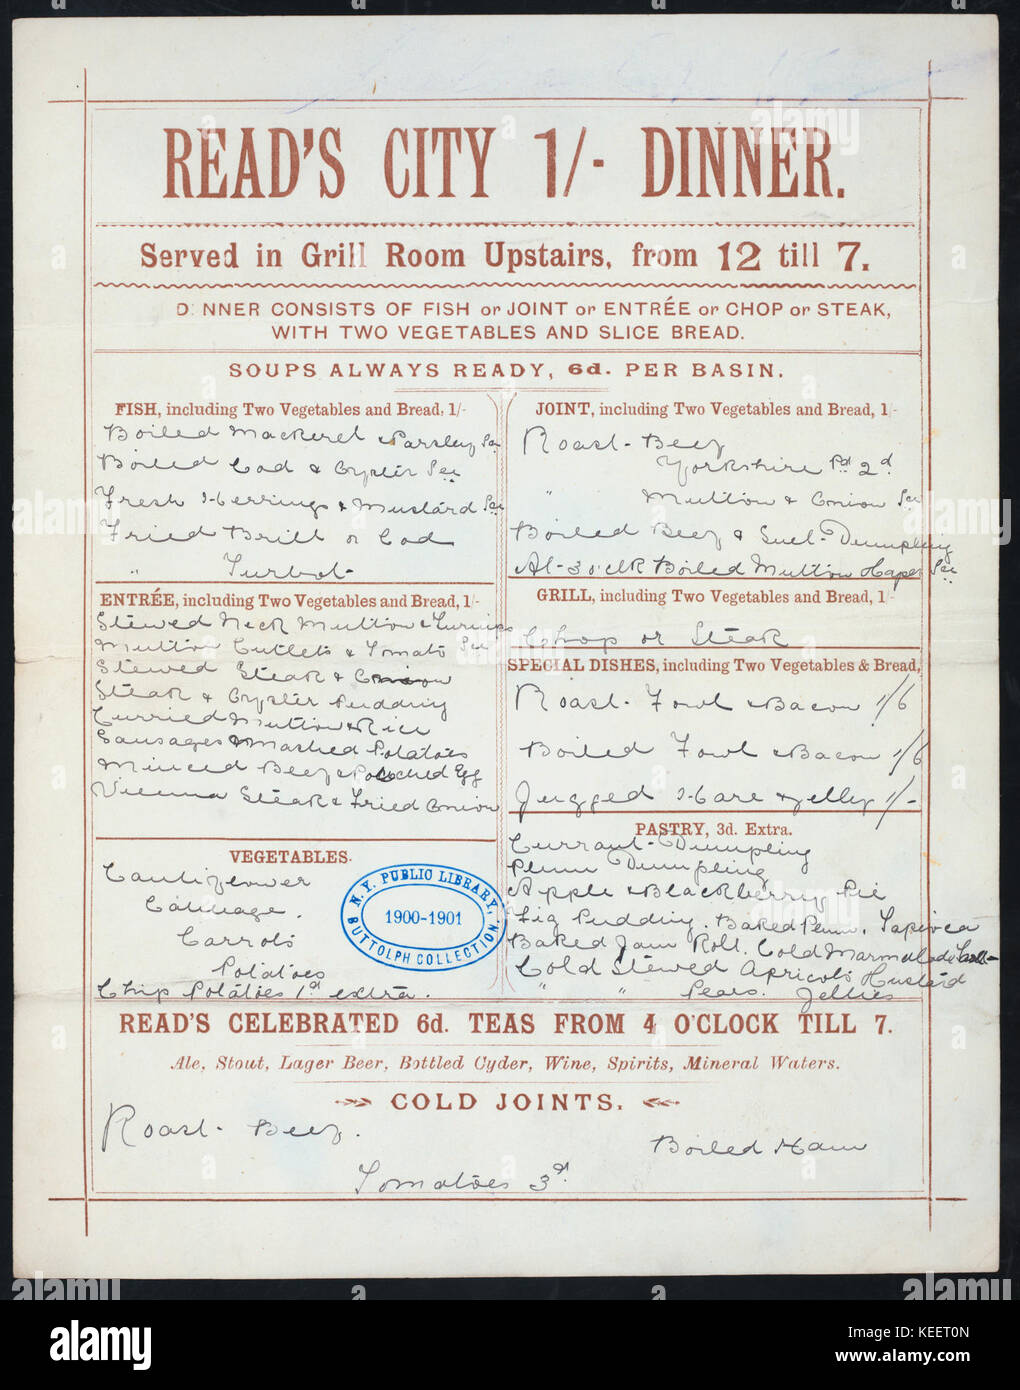 READ'S CITY 1/- DINNER.
Served in Grill Room Upstairs, from 12 till 7.
DINNER CONSISTS OF FISH or JOINT or ENTRÉE or CHOP or STEAK,
WITH TWO VEGETABLES AND SLICE BREAD.
SOUPS ALWAYS READY, 6d. PER BASIN.
FISH, including Two Vegetables and Bread, 1/-
Boiled Mackerel & Parsley Sce
Boiled Cod & Oyster Sce
Fresh Herrings & Mustard Sce
Fried Brill or Cod
" Turbot
ENTRÉE, including Two Vegetables and Bread, 1/-
Stewed Neck Mutton & Turnips
Mutton Cutlets & Tomato Sce
Stewed Steak & Onion
Steak & Oyster Pudding
Curried Mutton & Rice
Sausages & Mashed Potatoes
Minced Beef & Poached Egg
Vienna Steak & Fried Onion
VEGETABLES.
Cauliflower
Cabbage.
Carrots
Potatoes
Chip Potatoes 1d extra.
JOINT, including Two Vegetables and Bread, 1/-
Roast Beef
Yorkshire Pd 2d
" Mutton & Onion Sce
Boiled Beef & Suet Dumpling
At 3 o'clk Boiled Mutton Caper Sce
GRILL, including Two Vegetables and Bread, 1/-
Chop or Steak
SPECIAL DISHES, including Two Vegetables & Bread,
Roast Fowl & Bacon 1/6
Boiled Fowl & Bacon 1/6
Jugged Hare & Jelly 1/-
PASTRY, 3d. Extra.
Currant Dumpling
Plum Dumpling
Apple & Blackberry Pie
Fig Pudding. Baked Plum. Tapioca
Baked Jam Roll. Cold Marmalade
Cold Stewed Apricots Custard
" " Pears. Jellies
N.Y. PUBLIC LIBRARY,
1900-1901
BUTTOLPH COLLECTION.
READ'S CELEBRATED 6d. TEAS FROM 4 O'CLOCK TILL 7.
Ale, Stout, Lager Beer, Bottled Cyder, Wine, Spirits, Mineral Waters.
COLD JOINTS.
Roast Beef.
Boiled Ham
Tomatoes 3d
alamy
Image ID: KEET0N
www.alamy.com